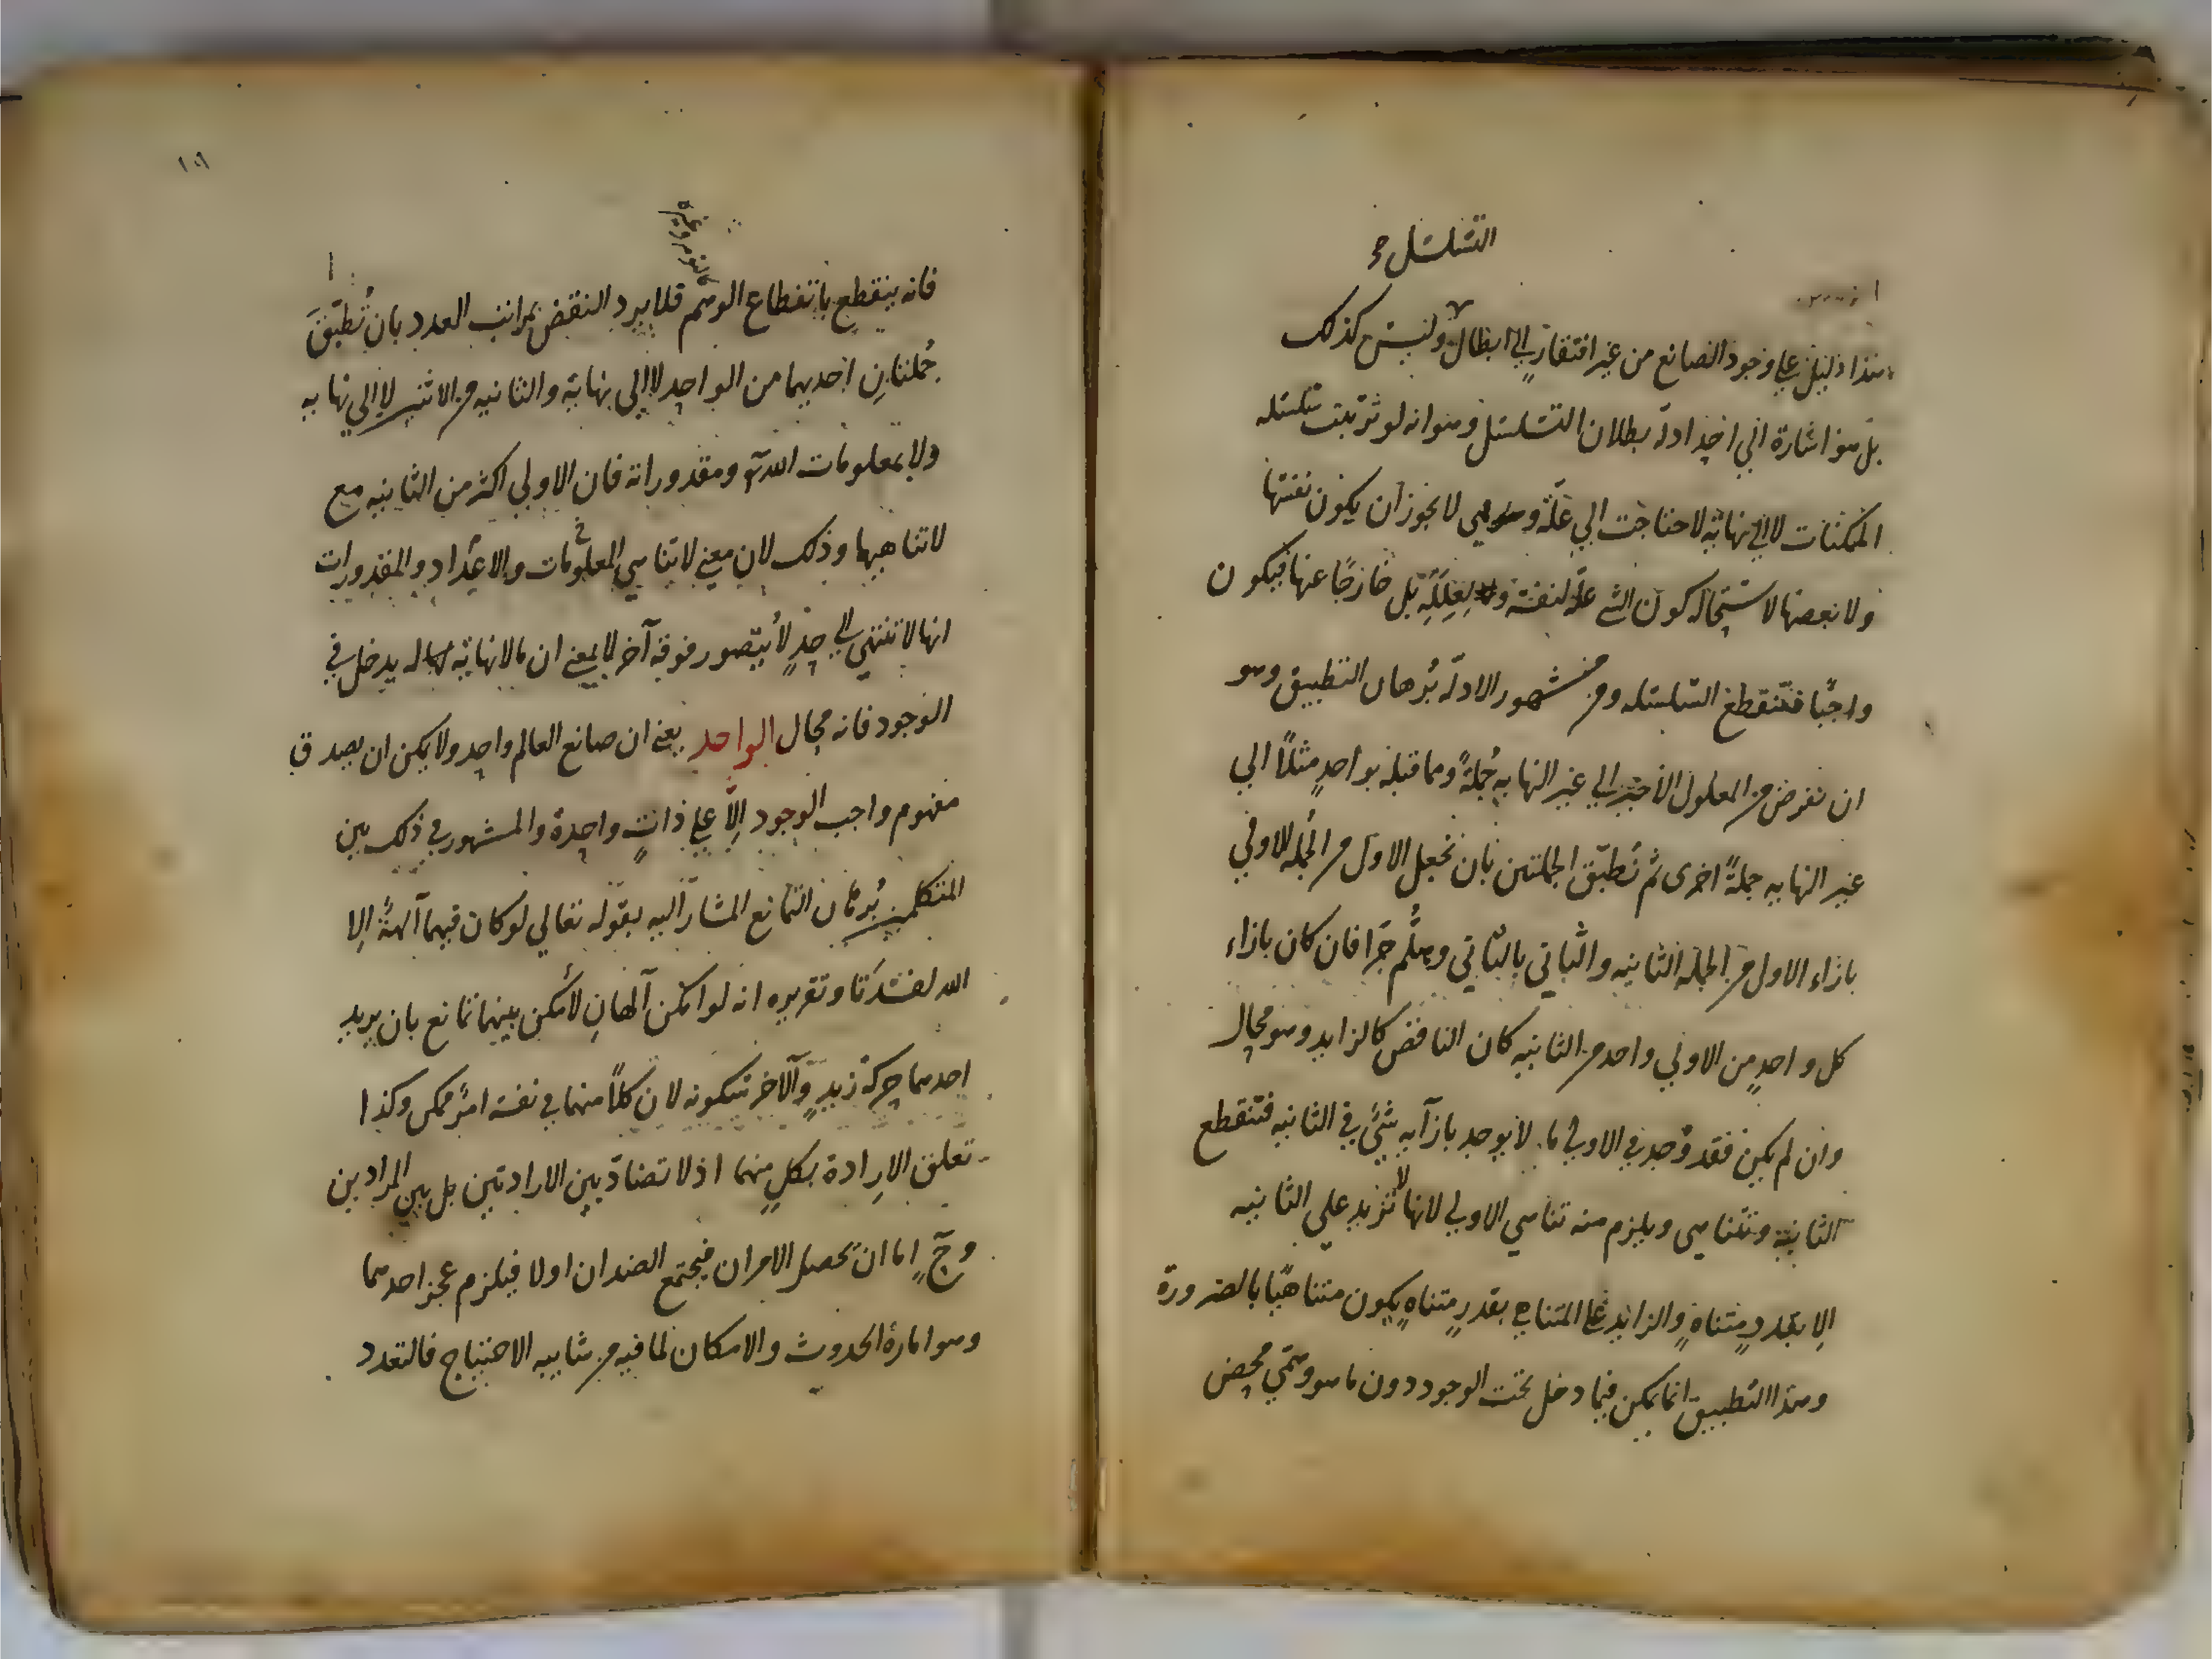 التسلسل صح
هذا دليل علي وجود الصانع من غير افتقار الي ابطال وليس كذلك
بل هو اشارة الي احد ادلة بطلان التسلسل وهو انه لو ترتبت سلسله
الممكنات لا الي نهاية لاحتاجت الي علة وهي لا يجوز ان يكون نفسها
ولا بعضها لاستحاله كون الشي علة لنفسه ولعلله بل خارجًا عنها فيكون
واجبًا فتنقطع السلسله ومن مشهور الادلة برهان التطبيق وهو
ان نفرض من المعلول الاخير الي غير النهايه جملةً ومما قبله بواحدٍ مثلًا الي
غير النهايه جملةً اخرى ثم نُطبّق الجملتين بان نجعل الاول من الجمله الاولي
بازاء الاول من الجمله الثانيه والثاني بالثاني وهلُمّ جرّا فان كان بازاء
كل واحدٍ من الاولي واحد من الثانيه كان الناقص كالزايد وهو محال
وان لم يكن فقد وُجد في الاولي ما لا يوجد بازآيه شئ في الثانيه فتنقطع
الثانية وتتناهى ويلزم منه تناهي الاولي لانها لا تزيد علي الثانيه
الا بقدرٍ متناهٍ والزايد علي المتناهي بقدرٍ متناهٍ يكون متناهيًا بالضرورة
وهذا التطبيق انما يمكن فيما دخل تحت الوجود دون ما هو وهمّي محض
١٥١
فانه ينقطع بانقطاع الوهم فلا يرد النقض بمراتب العدد بان نُطبّق
جُملتانِ احديهما من الواحد لا الي نهاية والثانيه من الاثنين لا الي نهايه
ولا بمعلومات الله تع ومقدوراته فان الاولي اكثر من الثانيه مع
لاتناهيهما وذلك لان معني لاتناهي المعلومات والاعداد والمقدورات
انها لا تنتهي الي حدٍ لا يتصور فوقه آخر لا بمعني ان ما لا نهاية له يدخل في
الوجود فانه محال الواحد يعني ان صانع العالم واحد ولا يمكن ان يصدق
مفهوم واجب الوجود الّا علي ذاتٍ واحدة والمشهور في ذلك بين
المتكلمين بُرهان التمانع المشار اليه بقوله تعالي لو كان فيهما آلهةٌ الا
الله لفسدَتا وتقريره انه لو امكن آلهانِ لأمكن بينهما تمانع بان يريد
احدهما حركة زيدٍ والآخر سكونه لان كلًا منهما في نفسه امرٌ ممكن وكذا
تعلق الارادة بكلٍ منهما اذ لا تضادّ بين الارادتين بل بين المرادين
وحٓ اما ان تحصل الامران فيجتمع الضدان اولا فيلزم عجز احدهما
وهو امارة الحدوث والامكان لما فيه من شايبه الاحتياج فالتعدد